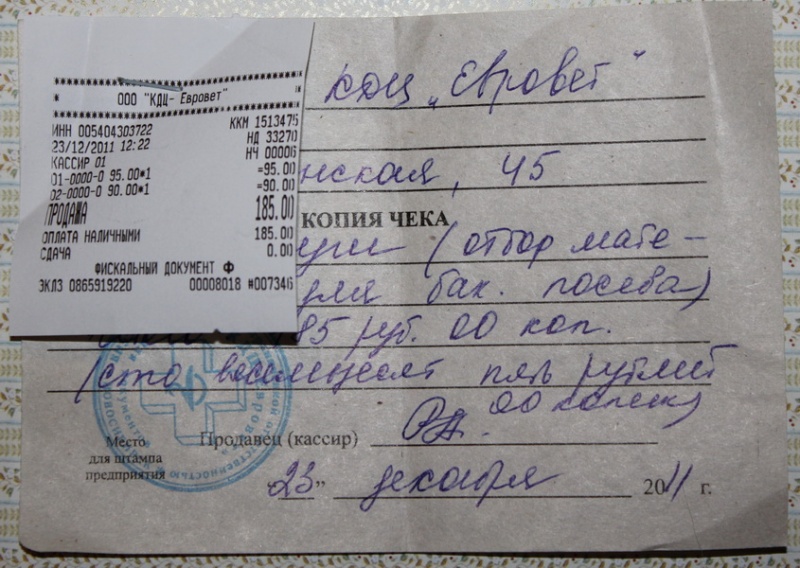 ООО "КДЦ- Евровет"
ИНН 005404303722 ККМ 1513475
23/12/2011 12:22 НД 33270
КАССИР 01 НЧ 00006
01-0000-0 95.00*1 =95.00
02-0000-0 90.00*1 =90.00
ПРОДАЖА 185.00
ОПЛАТА НАЛИЧНЫМИ 185.00
СДАЧА 0.00
ФИСКАЛЬНЫЙ ДОКУМЕНТ Ф
ЭКЛЗ 0865919220 00008018 #007346
КДЦ „Евровет"
нская, 45
КОПИЯ ЧЕКА
уги (отбор мате-
для бак. посева)
185 руб. 00 коп.
(сто восемьдесят пять рублей
00 копеек)
Место
для штампа
предприятия
Продавец (кассир)
"23" декабря 2011 г.